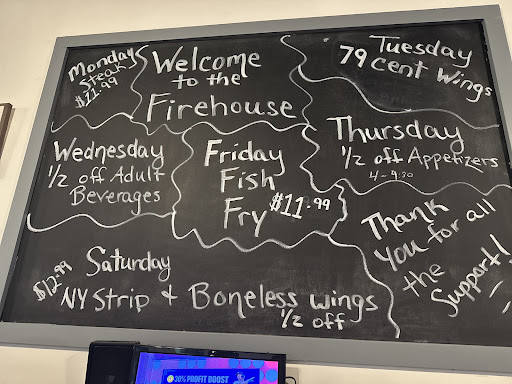 Monday
Steak
$11.99
Welcome
to the
Firehouse
Tuesday
79 cent Wings
Wednesday
1/2 off Adult
Beverages
Friday
Fish
Fry $11.99
Thursday
1/2 off Appetizers
4 - 9:30
Saturday
$12.99
NY Strip + Boneless wings
1/2 off
Thank
You for all
the
Support!
30% PROFIT BOOST